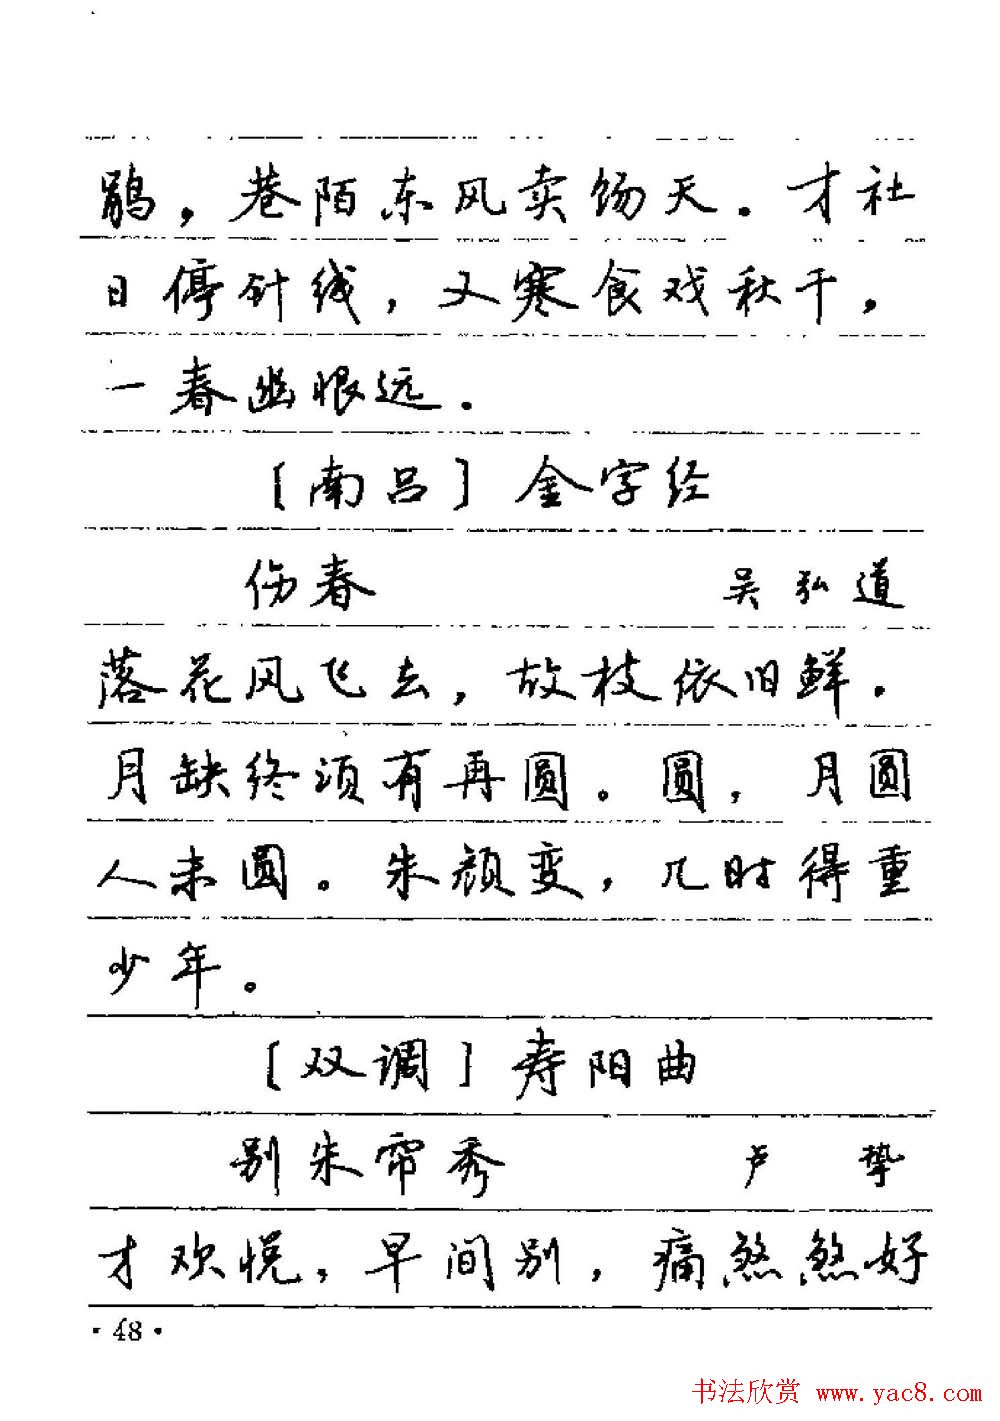 鹃，巷陌东风卖饧天。才社
日停针线，又寒食戏秋千，
一春幽恨远．
〔南吕〕金字经
伤春 吴弘道
落花风飞去，故枝依旧鲜．
月缺终须有再圆。圆，月圆
人未圆。朱颜变，几时得重
少年。
〔双调〕寿阳曲
别朱帘秀 卢挚
才欢悦，早间别，痛煞煞好
·48·
书法欣赏 www.yac8.com